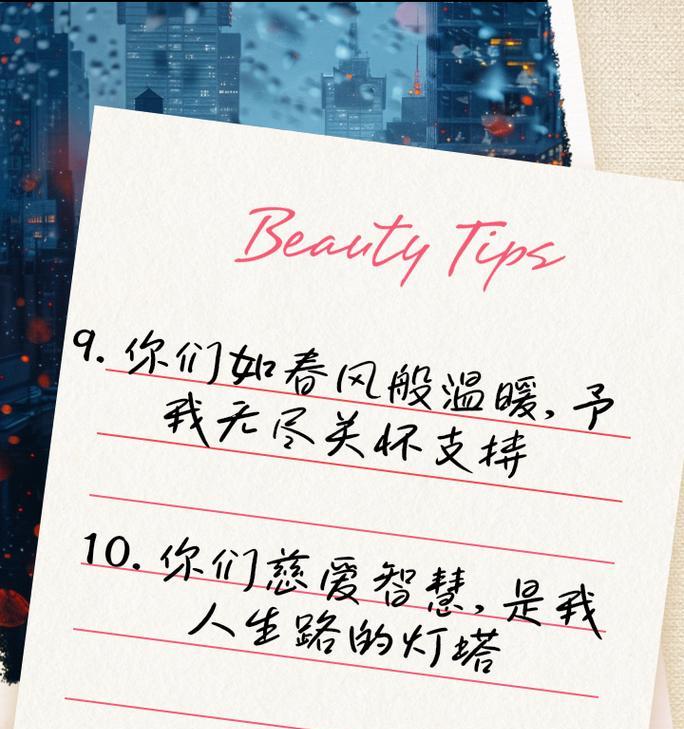 Beauty Tips
9. 你们如春风般温暖,予
我无尽关怀支持
10. 你们慈爱智慧,是我
人生路的灯塔